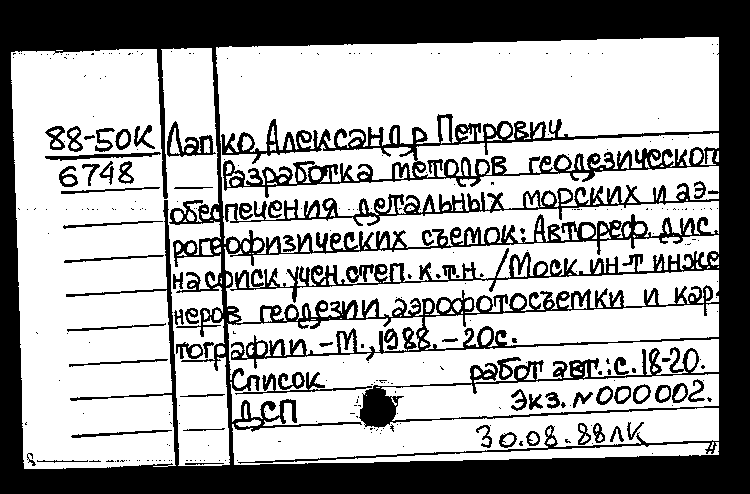 88-50К Лапко, Александр Петрович.
6748 Разработка методов геодезического
обеспечения детальных морских и аэ-
рогеофизических съемок: Автореф. дис.
на соиск. учен. степ. к.т.н. /Моск. ин-т инже
неров геодезии, аэрофотосъемки и кар-
тографии. -М., 1988. -20с.
Список работ авт.: с. 18-20.
ДСП Экз. N000002.
30.08.88ЛК